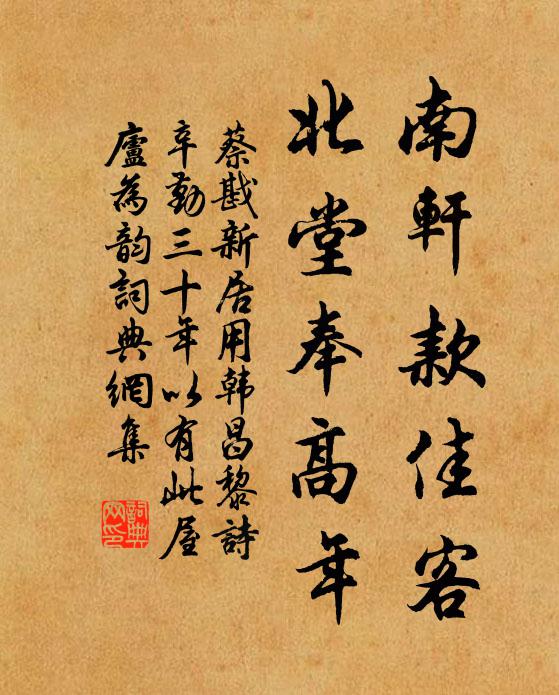 南軒款佳客
北堂奉高年
蔡戡新居用韓昌黎詩
辛勤三十年以有此屋
廬為韵詞典網集
詞典网印